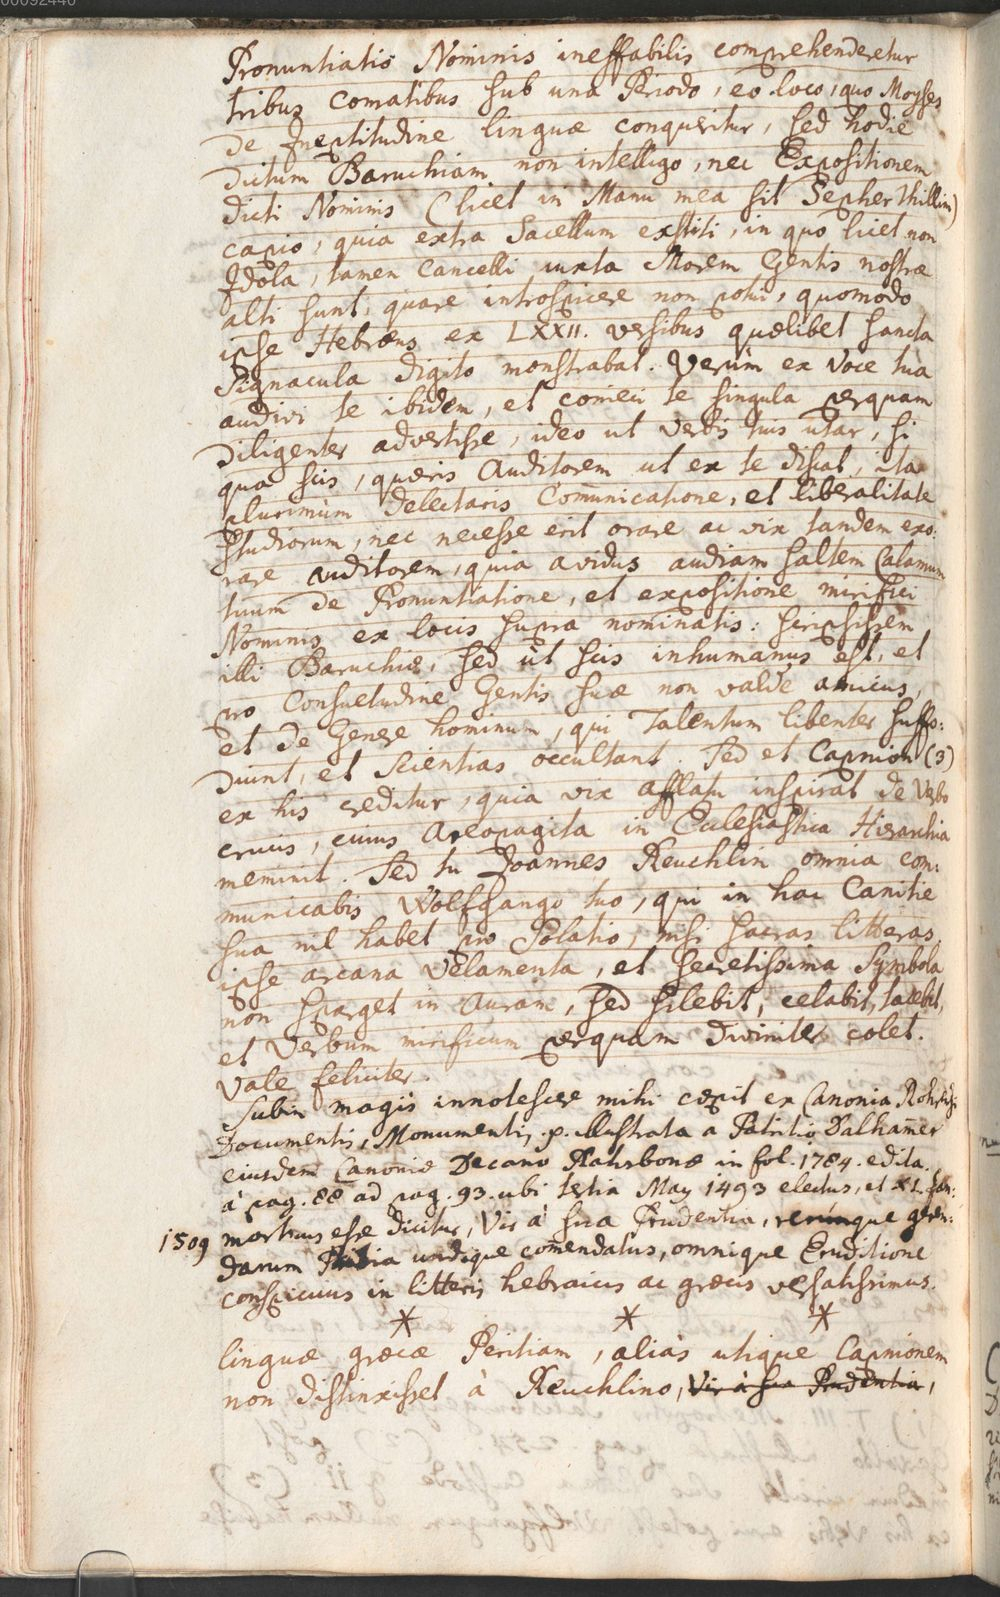 00092440
Pronuntiatio Nominis ineffabilis comprehenderetur
tribus comatibus sub una Periodo, eo loco, quo Moyses
de Ineptitudine linguæ conqueritur, sed hodie
dictum Baruchiam non intelligo, nec Expositionem
dicti Nominis (licet in Manu mea sit Sepher Thillim)
capio, quia extra Sacellum exstiti, in quo licet non
Idola, tamen Cancelli iuxta Morem Gentis nostræ
alti sunt, quare introspicere non potui, quomodo
ipse Hebræus ex LXXII. versibus quælibet sancta
Signacula digito monstrabat. Verùm ex Voce tua
audivi te ibidem, et conieci te singula perquam
diligenter advertisse, ideo ut verbis tuis utar, si
qua scis, quæris Auditorem ut ex te discat, ita
plurimùm delectaris Com̄unicatione, et liberalitate
studiorum, nec necesse erit orare ac vix tandem exo:
rare auditorem, quia avidus audiam saltem Calamum
tuum de Pronuntiatione, et expositione mirifici
Nominis ex locis supra nominatis: scripsissem
illi Baruchiæ, sed ùt scis inhumanus est, et
pro Consuetudine Gentis suæ non valdè amicus,
et de Genere hominum, qui Talentum libenter suffo:
diunt, et Scientias occultant. Sed et Capnion (3)
ex his creditur, quia vix afflatu inspirat de Verbo
crucis, cuius Areopagita in Ecclesiastica Hierarchia
meminit. Sed tu Joannes Reuchlin omnia com:
municabis Wolfgango tuo, qui in hac Canitie
sua nil habet pro Solatio, nisi sacras litteras,
ipse arcana velamenta, et secretissima Symbola
non sparget in Auram, sed silebit, celabit, tacebit,
et Verbum mirificum perquam diviniter colet.
Vale feliciter.
Subin magis innotescere mihi cœpit ex Canonia
Documentis, Monumentis .p. illustrata a Patritio Dalham̄er
eiusdem Canoniæ Decano Ratisbonæ in fol. 1784. edita.
à pag. 88 ad pag. 93. ubi tertia May 1493 electus, et XI. Jan:
1509 mortuus esse dicitur, Vir à sua Prudentia, rerúmque geren:
darum undique com̄endatus, omnique Eruditione
conspicuus in litteris hebraicis ac græcis versatissimus.
* * *
linguæ græcæ Peritiam, aliàs utique Capnionem
non distinxisset à Reuchlino, Vir à sua Prudentia,